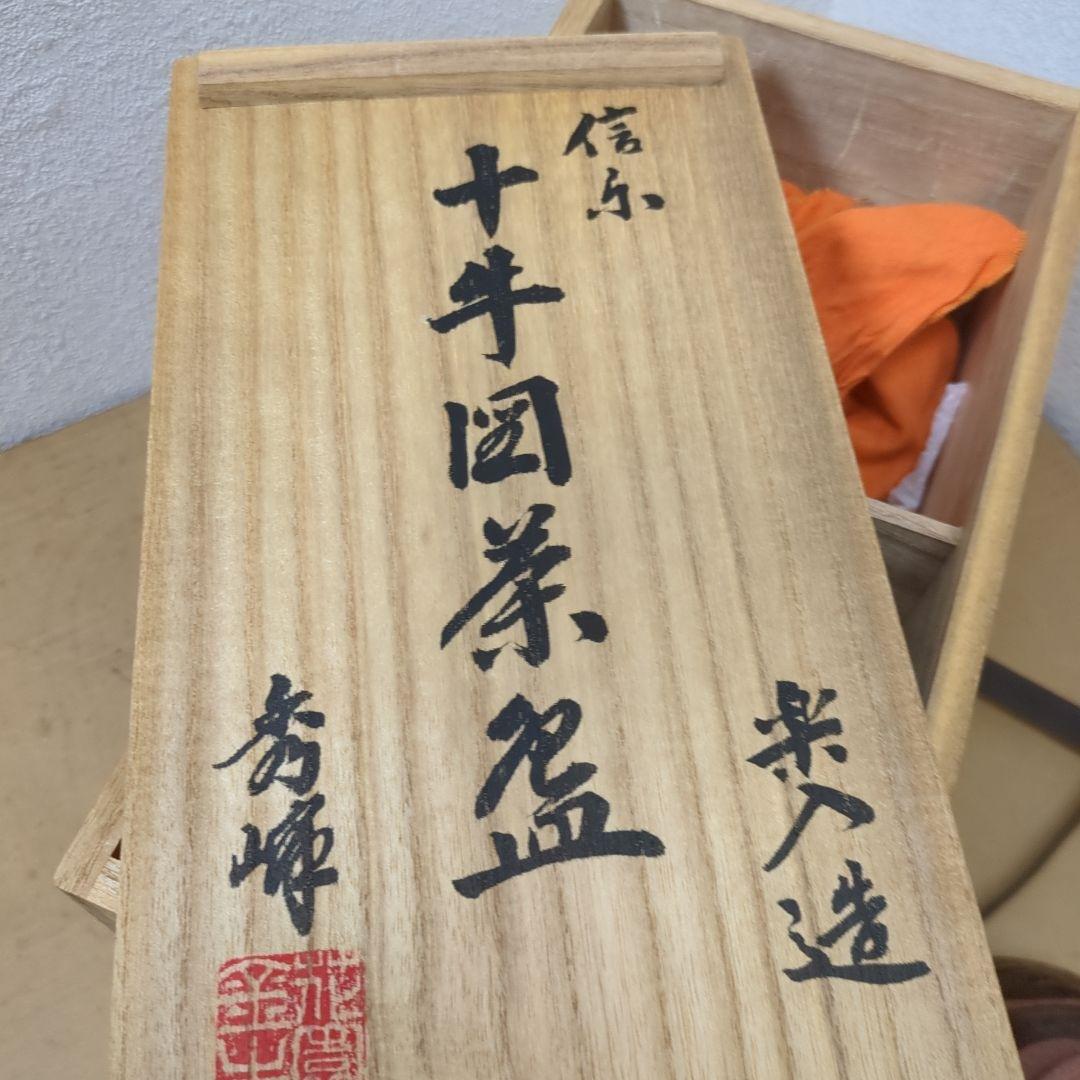 信楽
十牛図茶盌
楽入造
秀峰